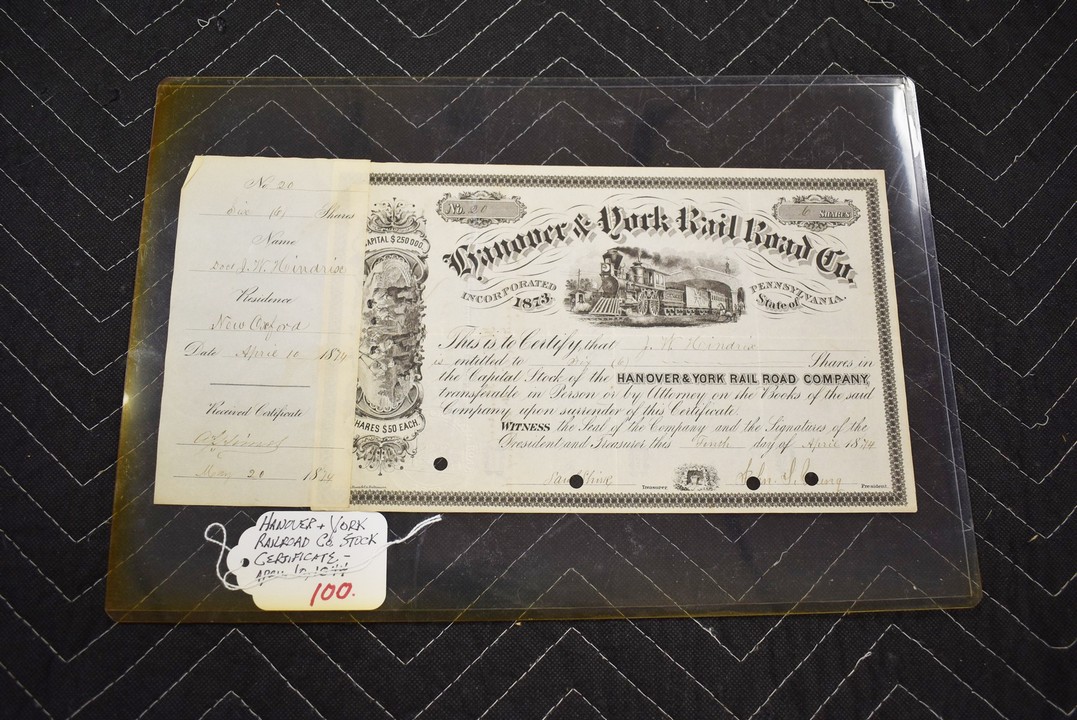 No. 20
Six (6) Shares
Name
J. W. Hindrix
Residence
New Oxford
Date April 10 1874
Received Certificate
May 20 1874
CAPITAL $250000.
SHARES $50 EACH.
No. 20
6 SHARES
Hanover & York Rail Road Co.
INCORPORATED 1873. State of PENNSYLVANIA.
This is to Certify, that J. W. Hindrix
is entitled to Six (6) Shares in
the Capital Stock of the HANOVER & YORK RAIL ROAD COMPANY,
transferable in Person or by Attorney on the Books of the said
Company upon surrender of this Certificate.
WITNESS the Seal of the Company and the Signatures of the
President and Treasurer this Tenth day of April 1874
Treasurer John S. Young President.
HANOVER + YORK
RAILROAD CO. STOCK
CERTIFICATE -
APRIL 10, 1874
100.